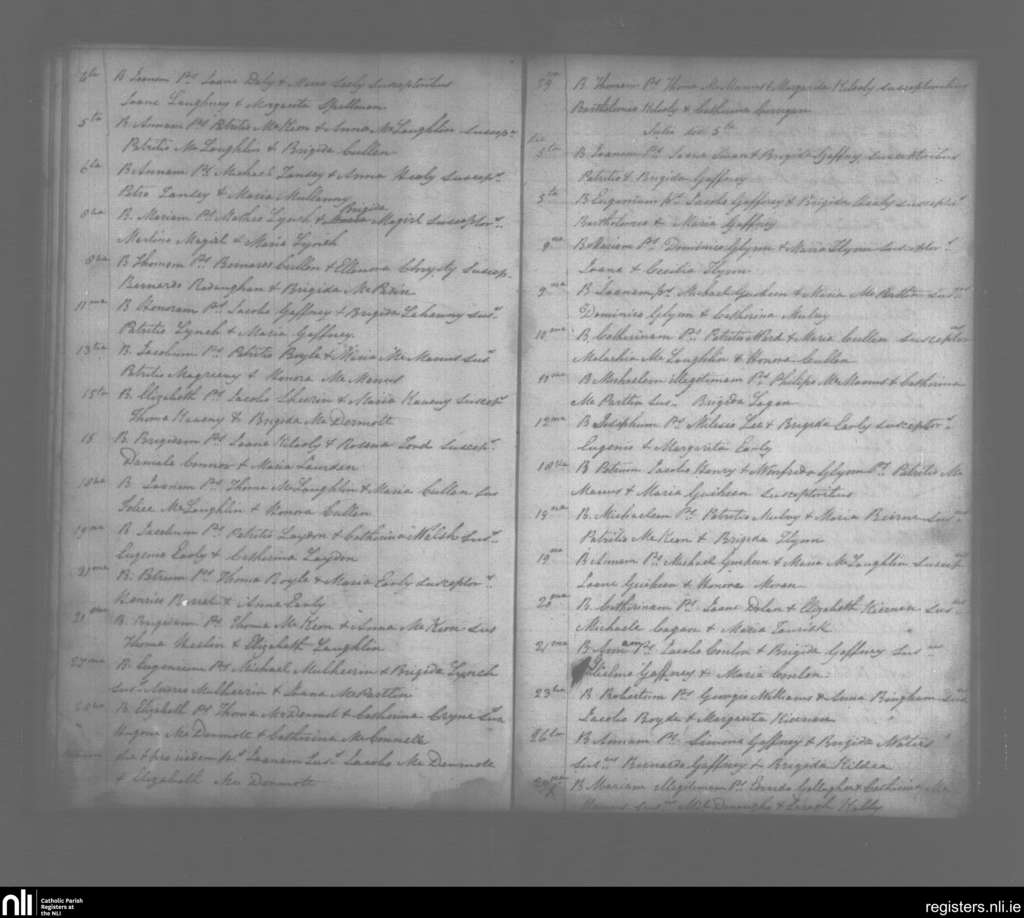 4ta B Joanem Ps Joane Daly & Maria Early Susceptoribus
Joane Loughney & Margarita Spellman
5ta B Annam Ps Patritio McKeon & Anna McLoughlin Suscepr
Patritio McLoughlin & Brigida Cullen
6ta B Annam Ps Michael Tansey & Anna Healy Suscepr
Petro Tansey & Maria Mullaney
8va B. Mariam Ps Matheo Lynch & Brigida Magirl Susceptor
Martino Magirl & Maria Lynch
8va B Thomam Ps Bernardo Cullen & Ellenora Chrysty Suscep
Bernardo & Brigida
11ma B Honoram Ps Jacobo Gaffney & Brigida Lehenny Sus
Patritio Lynch & Maria Gaffney.
13tia B. Jacobum Ps Patritio Boyle & Maria McManus Sus
Patritio & Honora McManus
15ta B Elizabeth Ps Jacobo & Maria Suscepr
Thoma & Brigida McDermott
15 B. Brigidam Ps Joane Kilroly & Rosena Ford Suscep
Daniele Connor & Maria
18va B Joanem Ps Thoma McLoughlin & Maria Cullen Sus
McLoughlin & Honora Cullen
19na B Jacobum Ps Patritio Laydon & Catherina Walsh Sus
Eugenio Early & Catherina Laydon
21ma B. Petrum Ps Thoma Boyle & Maria Early Susceptor
Henrico & Anna Early
21 B. Brigidam Ps Thoma McKeon & Anna McKeon Sus
Thoma & Elizabeth Loughlin
27ma B. Eugenium Ps Michael Mulherin & Brigida Lynch
Sus Mulherin & McPartlin
B Elizabeth Ps Thoma McDermot & Catherina Sus
McDermott & Catherina McConnell
Joanem Sus Jacobo McDermott
& Elizabeth McDermott
29 B Thomam Ps Thoma McManus & Margarita Kilroly Susceptoribus
Bartholomeo Kilroly & Catherina Corrigan
5ta
5ta B Joanem Ps Joane & Brigida Gaffney Susceptoribus
Patritio & Brigida Gaffney
5ta B Eugenium Ps Jacobo Gaffney & Brigida Susceptor
Bartholomeo & Maria Gaffney
9na B Mariam Ps Dominico Glynn & Maria Flynn Susceptor
Joane & Cecilia Flynn
9na B Joanem Ps Michael Guiheen & Maria McPartlin Sus
Dominico Glynn & Catherina Mulvy
10ma B Catherinam Ps Patritio Ward & Maria Cullen Susceptor
Melachia McLoughlin & Honora Cullen
11ma B Michaelem illegitimam Ps Philipo McManus & Catherina
McPartlin Sus Brigida Fagan
12ma B Josephum Ps Milesio Lee & Brigida Early susceptor
Eugenio & Margarita Early
18va B Petrum Jacobo Henry & Winifreda Glynn Ps Patritio Mc
Manus & Maria Guiheen susceptoribus
19na B. Michaelem Ps Patritio Mulvy & Maria Beirne Sus
Patritio McKeon & Brigida Flynn
19na B Annam Ps Michael Guiheen & Maria McLoughlin Suscep
Joane Guiheen & Honora Moran
20ma B Catherinam Ps Joane Dolan & Elizabeth Kiernan Sus
Michaele Cogan & Maria
21ma B Annam Ps Jacobo Conlon & Brigida Gaffney Sus
Gaffney & Maria Conlon
23tia B. Robertum Ps Georgio Williams & Anna Bingham Sus
Jacobo Boyde & Margarita Kiernan
26ta B Annam Ps Simone Gaffney & Brigida Waters
Sus Bernardo Gaffney & Brigida Kildea
B Mariam illegitimam Ps Gallagher & Catherina Mc
Manus Sus & Sarah Kelly
nli
Catholic Parish
Registers at
the NLI
registers.nli.ie